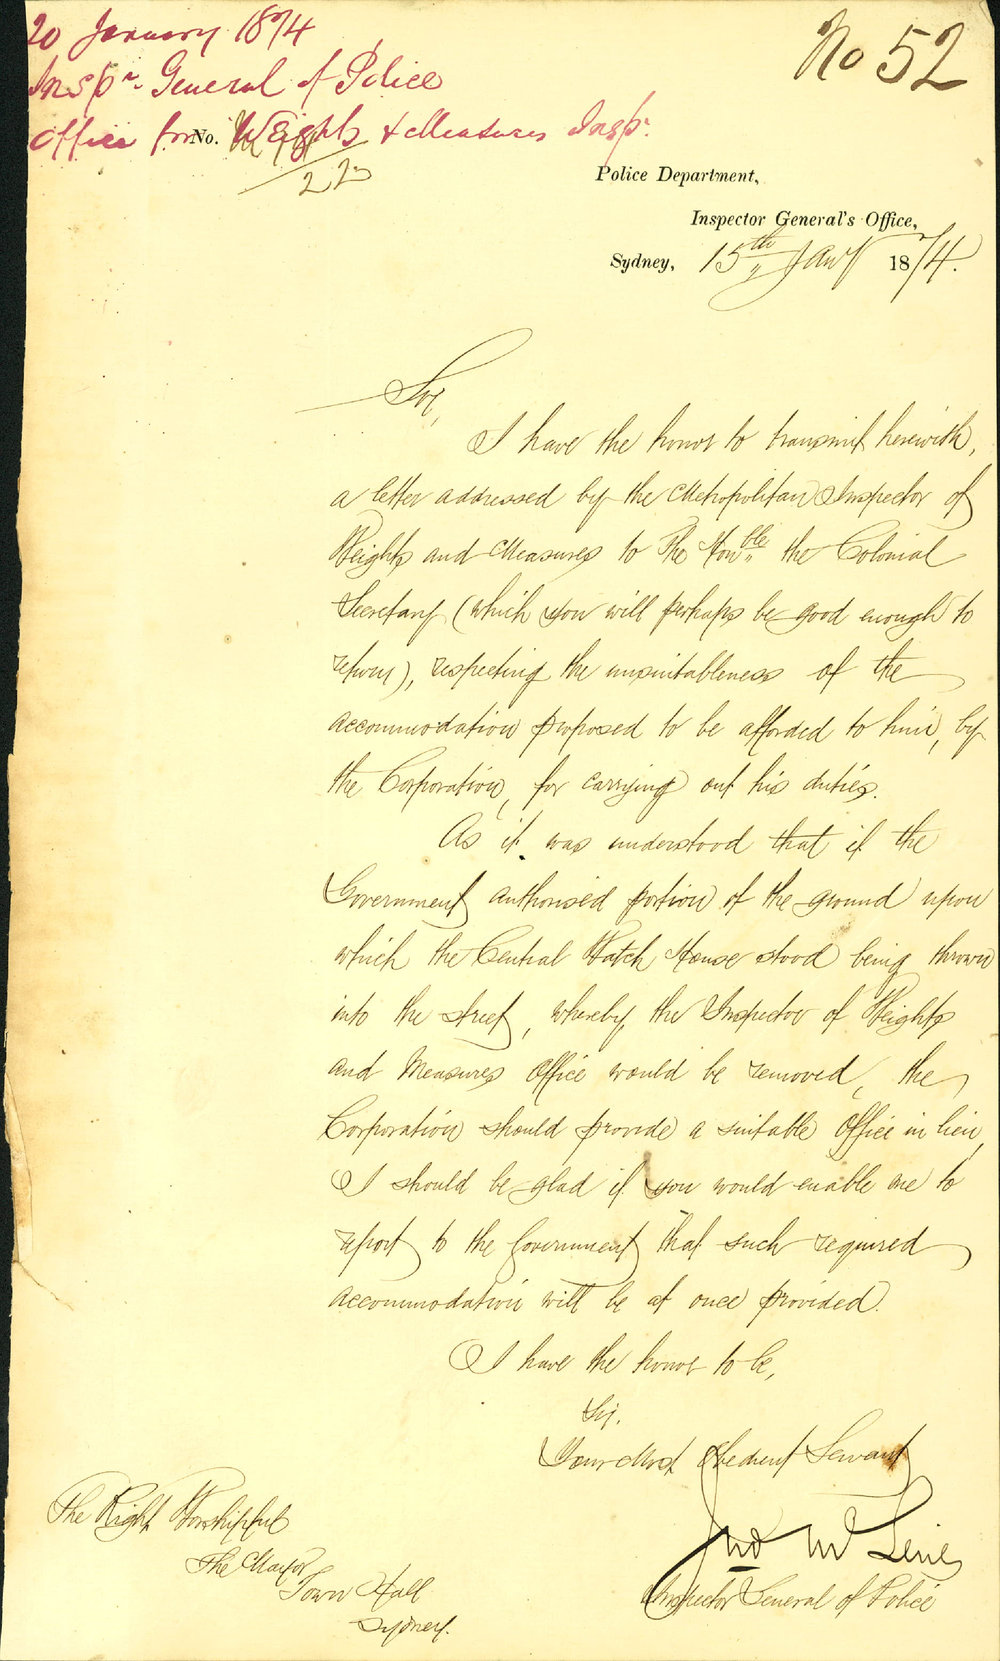 20 January 1874
Inspr. General of Police
Office for Weights & Measures Insp.
No 52
No.
22
Police Department,
Inspector General's Office,
Sydney, 15th Jany 1874.
Sir,
I have the honor to transmit herewith,
a letter addressed by the Metropolitan Inspector of
Weights and Measures to The Honble the Colonial
Secretary (which you will perhaps be good enough to
return), respecting the unsuitableness of the
accommodation proposed to be afforded to him, by
the Corporation, for carrying out his duties.
As it was understood that if the
Government authorised portion of the ground upon
which the Central Watch House stood being thrown
into the street, whereby the Inspector of Weights
and Measures Office would be removed, the
Corporation should provide a suitable Office in lieu,
I should be glad if you would enable me to
report to the Government that such required
accommodation will be at once provided.
I have the honor to be,
Sir,
Your Most Obedient Servant
Jno McLerie
Inspector General of Police
The Right Worshipful
The Mayor
Town Hall
Sydney.